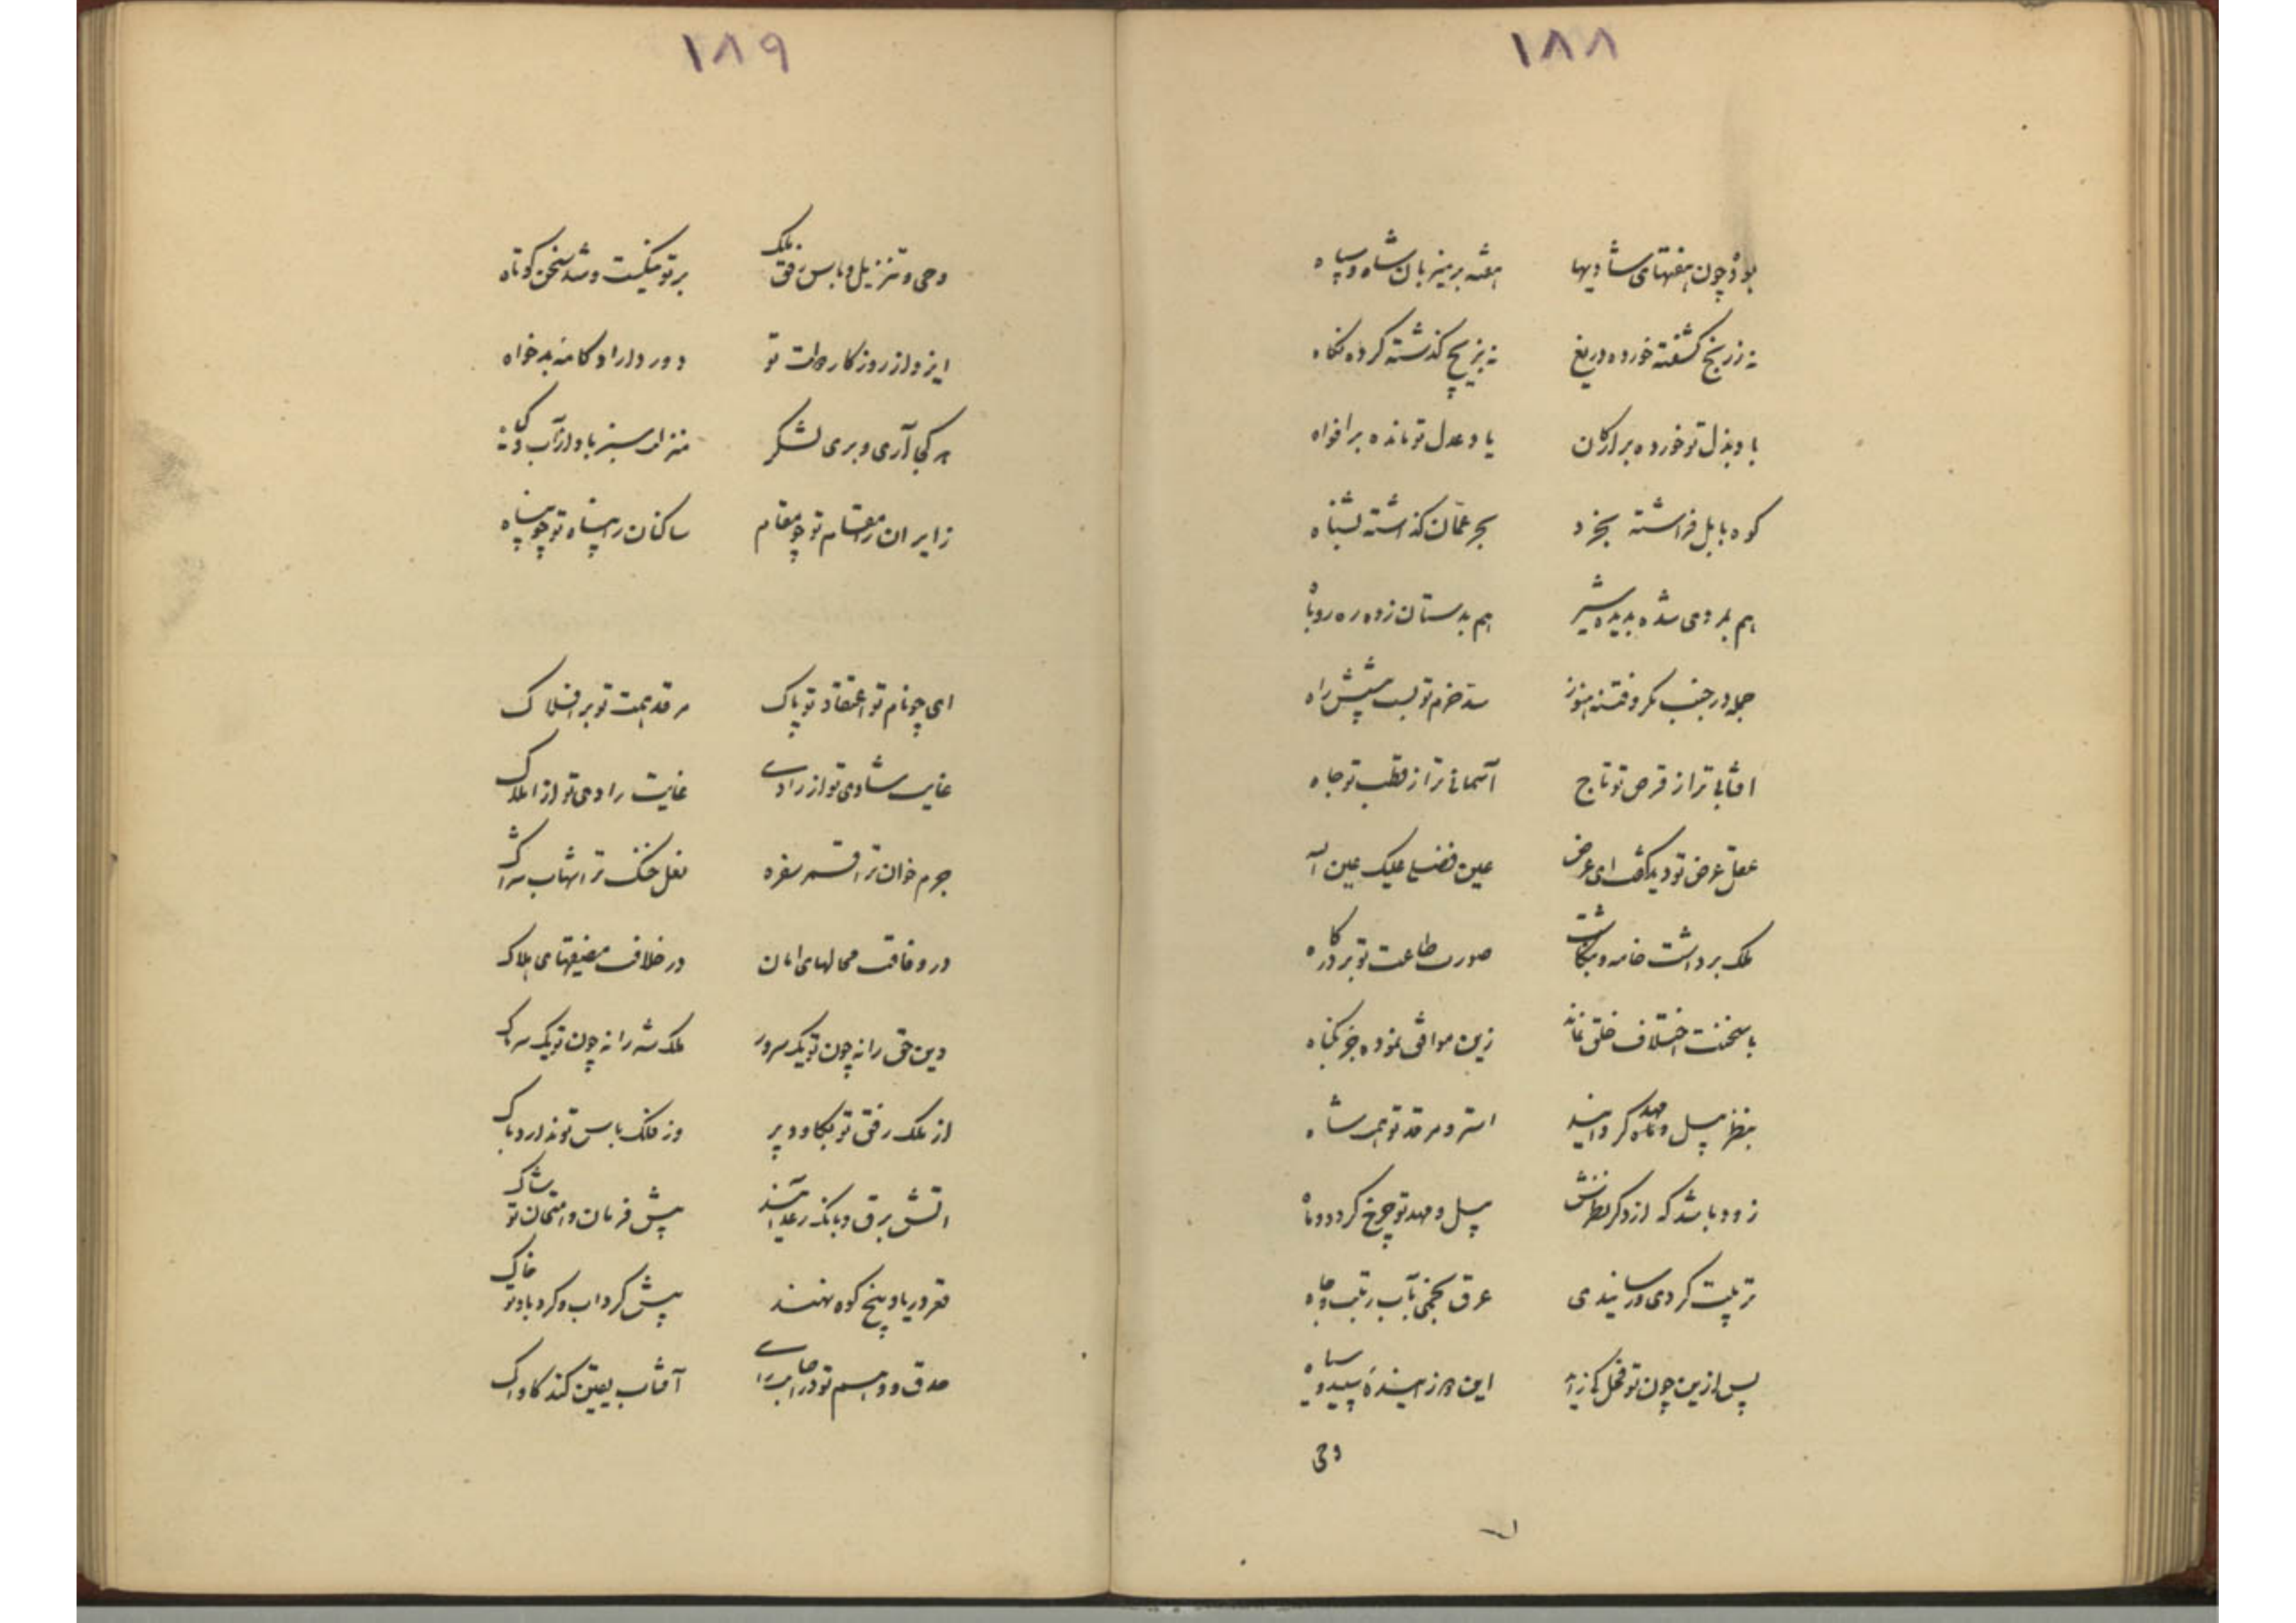 ۱۸۸
بود چون هفتهای شادیها هفته بر میزبان شاه و سپاه
نه ز رنج کشفته خورده دریغ نه بزیج گذشته کرده نگاه
باد بذل تو خورده بر ارکان یاد عدل تو مانده بر افواه
کوه بابل فراشته بخرد بحر عمان گذاشته بشناه
هم بمردی شده بدیده شیر هم بدستان زده ره روباه
جمله در جنب مکر و فتنه هنوز سد حزم تو بست پیشش راه
افتابی ترا ز قرص تو تاج آسمانی ترا ز قطب تو جاه
عقل عرض تو دید گفت ای عرض عین فضلی علیک عین اله
ملک برداشت خامه و بنگاشت صورت طاعت تو بر درگاه
با سخنت اختلاف خلق نماند زین موافق نموده جز بگناه
بنظر پیل و مهد گردانید استر و مرقد تو همت شاه
زود باشد که از دگر نظرش پیل و مهد تو چرخ گردد و ماه
تربیت کردی و رسانیدی عرق بخمی بآب رتبت و جاه
پس ازین چون تو فحل کی زاید این دو زاینده سپید و سیاه
وحی
۱۸۹
وحی و تنزیل و باس رفق ملک بر تو بگسست و شد سخن کوتاه
ایزد از روزگار دولت تو دور داراد کامه بدخواه
هر کجا آری و بری لشکر منزلت سبز باد از آب و گیاه
زایران را مقام تو چو مقام ساکنان را پناه تو چو پناه
ای چو نام تو اعتقاد تو پاک مرقد همت تو بر افلاک
غایت شادی تو از رادی غایت رادی تو از املاک
جرم خوان ترا قمر سفره نعل خنک ترا شهاب شراک
در وفاقت محالهای امان در خلافت مضیقهای هلاک
دین حق را نه چون تو یک سرور ملک شه را نه چون تو یک سرناک
از ملک رفق تو بکاود پر وز فلک باس تو ندارد باک
اتش برق و بانگ رعد آیند پیش فرمان و امتحان تو شاک
قعر دریا و بیخ کوه نهند پیش گرداب و گرد باد تو خاک
صدق و وهم تو در اصابت رای آفتاب یقین کند کاواک